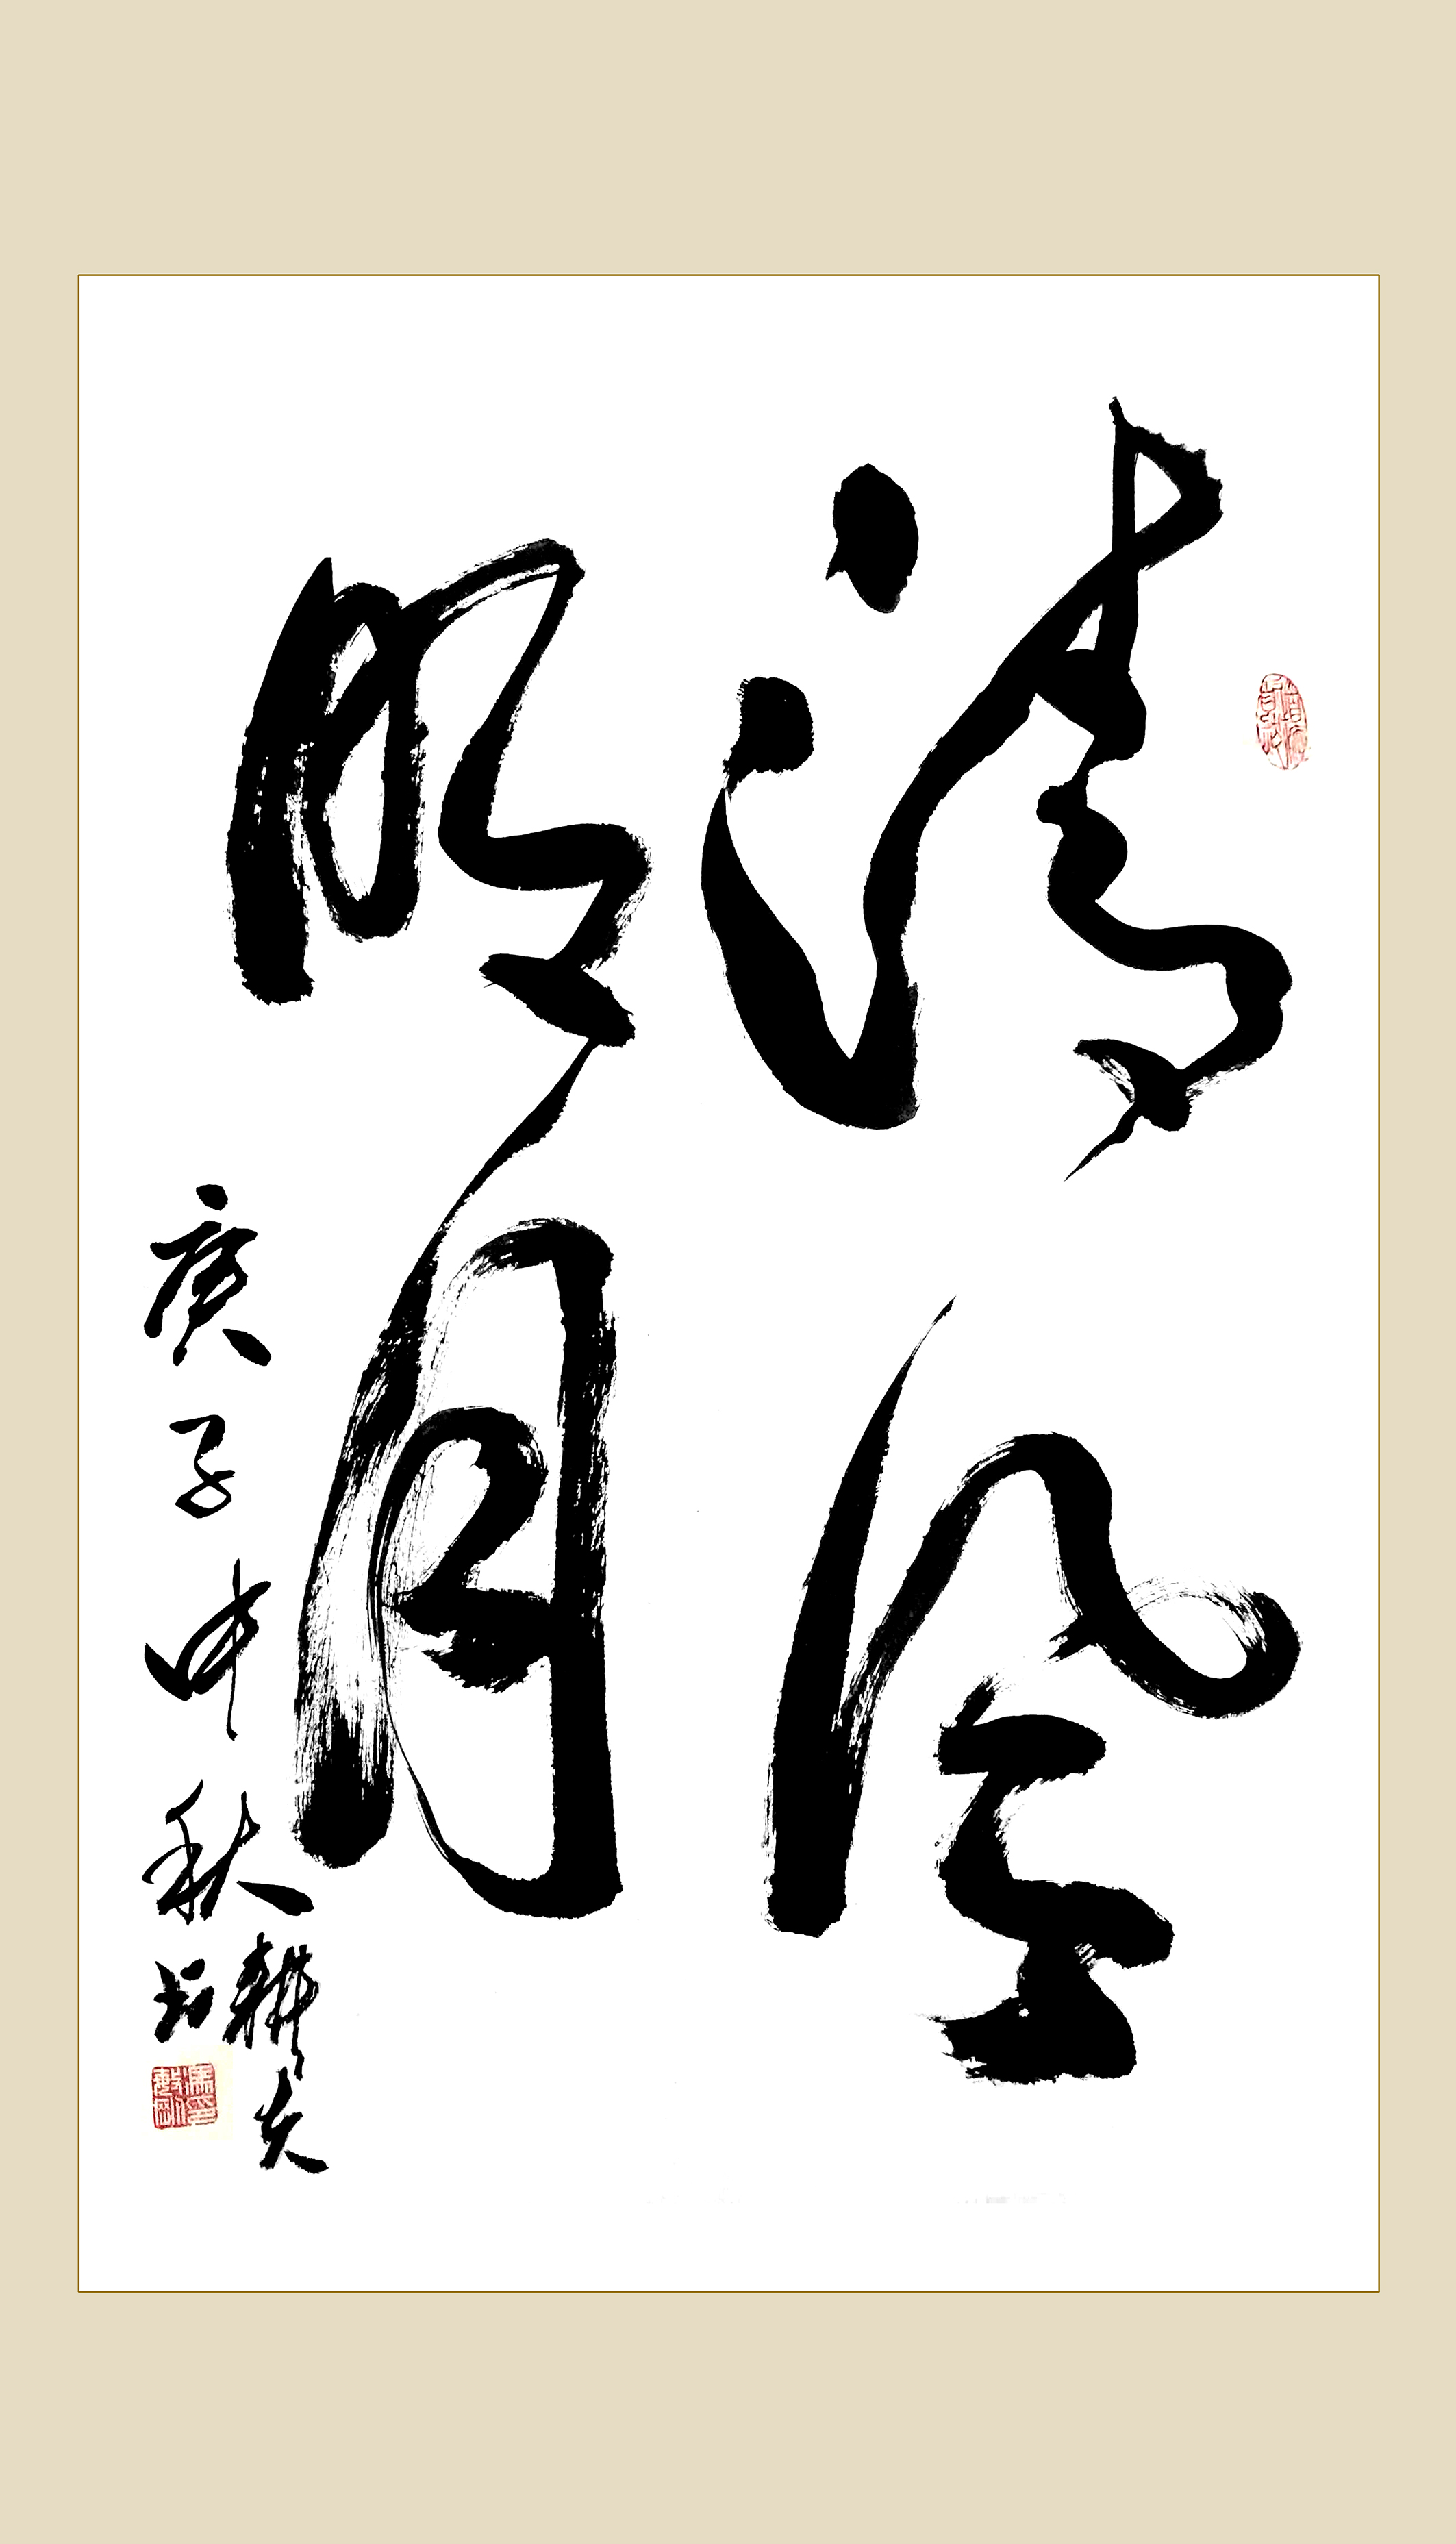 清风
明月
庚子中秋
耕夫